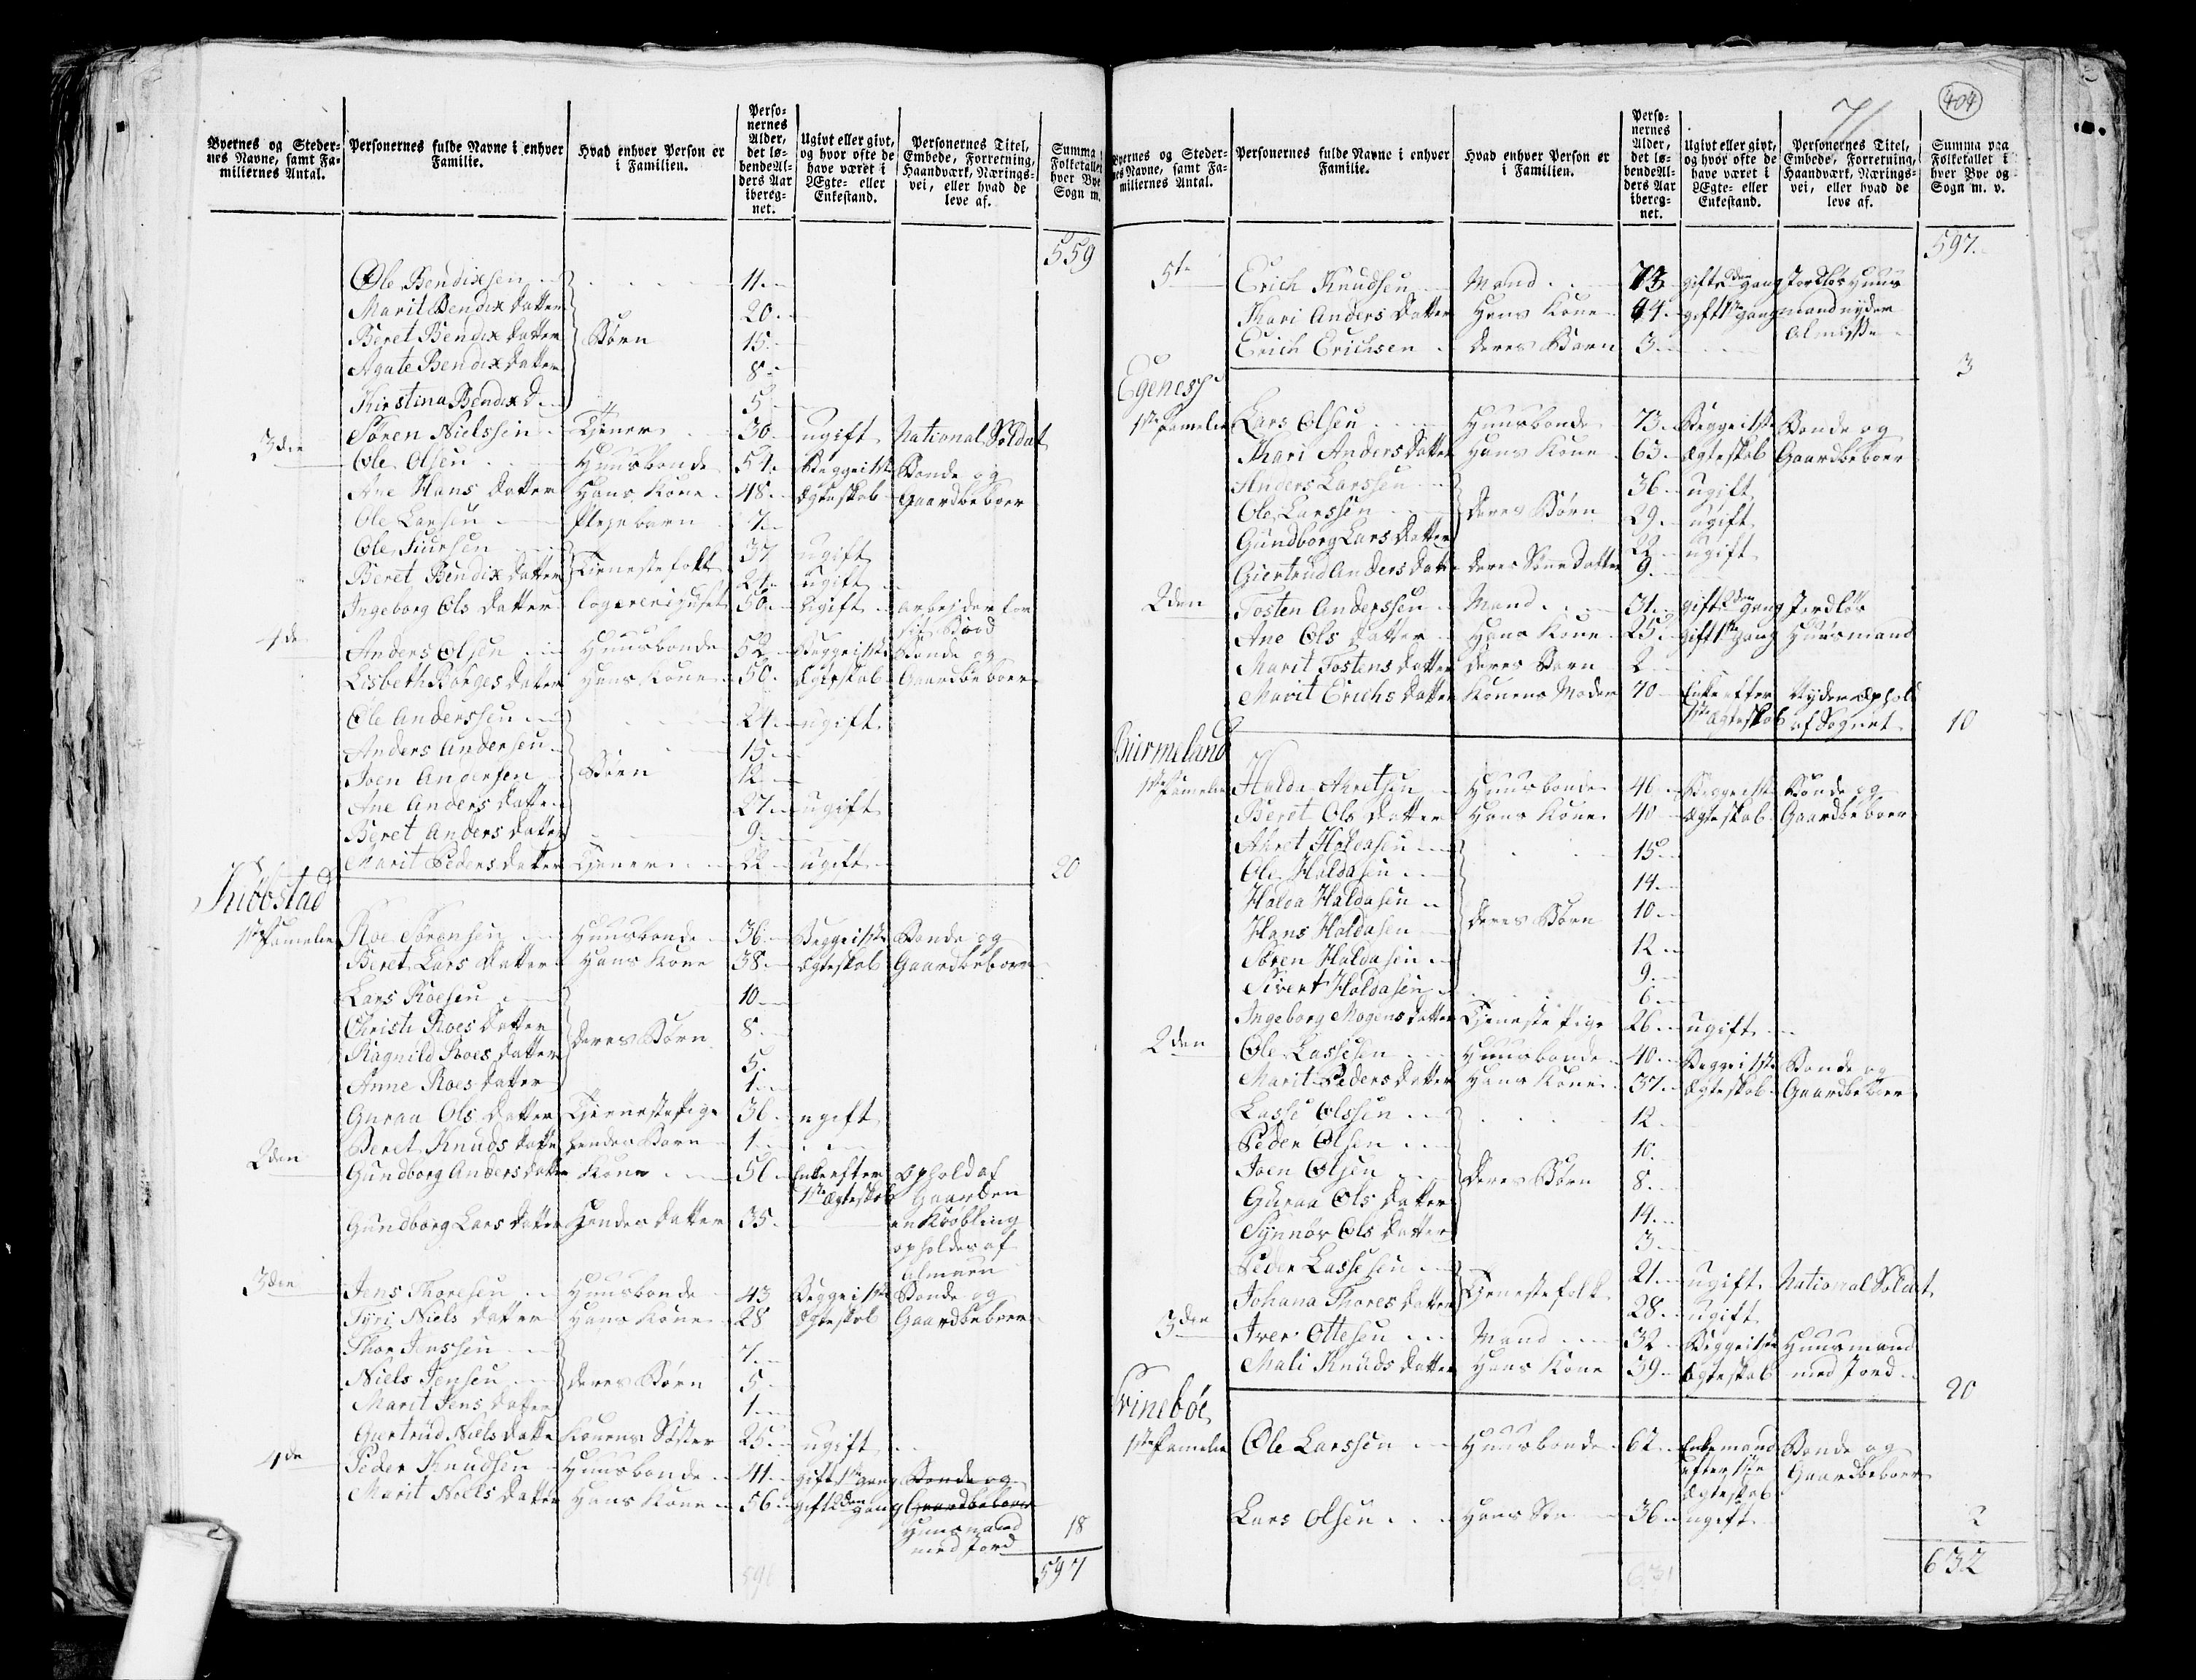 Byernes og Steder-
nes Navne, samt Fa-
miliernes Antal.
Personernes fulde Navne i enhver
Familie.
Hvad enhver Person er
i Familien.
Perso-
nernes
Alder,
det lø-
bende Al-
ders Aar
ibereg-
net.
Ugivt eller givt,
og hvor ofte de
have været i
Ægte- eller
Enkestand.
Personernes Titel,
Embede, Forretning,
Haandværk, Nærings-
vei, eller hvad de
leve af.
Summa
Folketallet
hver Bye
Sogn m.
559
Ole Bendixsen 11.
Marit Bendix Datter 20.
Beret Bendix Datter Børn 15.
Agate Bendix Datter 8.
Kirstina Bendix D. 5
Søren Nielssen Tjener 30. ugift National Soldat
3die Ole Olsen Huusbonde 54. Begge i 1ste Bonde og
Ane Hans Datter Hans Kone 48. Ægteskab Gaardbeboer
Ole Larsen Plejebarn 7.
Ole Siursen 37 ugift
Beret Bendix Datter Tienestefolk 24. ugift
Ingeborg Ols Datter logerer i Huset 50. Ugift arbejder for
sit Brød
4de Anders Olsen Huusbonde 52 Begge i 1ste Bonde og
Lisbeth Børges Datter Hans Kone 50. Ægteskab Gaardbeboer
Ole Anderssen 24. ugift
Anders Andersen 15
Joen Andersen Børn 12
Ane Anders Datter 27. ugift
Beret Anders Datter 9.
Marit Peders Datter Tjener 22 ugift
20
Kiöbstad
1ste Famelie Roe Sørensen Huusbonde 36. Begge i 1ste Bonde og
Beret Lars Datter Hans Kone 38. Ægteskab Gaardbeboer
Lars Roesen 10
Christi Roes Datter 8.
Ragnild Roes Datter deres Børn 5.
Anne Roes Datter 1.
Guraa Ols Datter Tjenestepige 36. ugift
Beret Knuds Datter hendes Barn 1.
2den Gundborg Anders Datter Kone 56 Enke efter Ophold af
1ste Ægteskab Gaarden
Gundborg Lars Datter Hendes Datter 35. en Krøbling
opholdes af
Almuen
3die Jens Thoresen Huusbonde 43 Begge i 1ste Bonde og
Tyri Niels Datter Hans Kone 28 Ægteskab Gaardbeboer
Thor Jenssen 7.
Niels Jensen deres Børn 5.
Marit Jens Datter 1.
Gurtrud Niels Datte Konens Søster 25. ugift
4de Peder Knudsen Huusbonde 41. gift 1ste gang Bonde og
Marit Niels Datter Hans Kone 56. gift 2den gang Gaardbeboer
Huusmand
med Jord
18
597
404
71
Byernes og Steder-
nes Navne, samt Fa-
miliernes Antal.
Personernes fulde Navne i enhver
Familie.
Hvad enhver Person er
i Familien.
Perso-
nernes
Alder,
det lø-
bende Al-
ders Aar
ibereg-
net.
Ugivt eller givt,
og hvor ofte de
have været i
Ægte- eller
Enkestand.
Personernes Titel,
Embede, Forretning,
Haandværk, Nærings-
vei, eller hvad de
leve af.
Summa paa
Folketallet i
hver Bye og
Sogn m. v.
597.
5te Erich Knudsen Mand 73 gift 2den gang Jordløs Huus
Kari Anders Datter Hans Kone 44. gift 1ste gang mand nyder
Erich Erichsen deres Barn 3. Almisse
3
Egeness
1ste Famelie Lars Olsen Huusbonde 73. Begge i 1ste Bonde og
Kari Anders Datter Hans Kone 63. Ægteskab Gaardbeboer
Anders Larssen 36. ugift
Ole Larssen deres Børn 29. ugift
Gundborg Lars Datter 22 ugift
Giertrud Anders Dat deres Sønne Datter 9.
2den Tosten Anderssen Mand 31. gift 2den gang Jordløs
Ane Ols Datter Hans Kone 25. gift 1ste gang Huusmand
Marit Tostens Datter deres Barn 2
Marit Erichs Datter Konens Moder 70 Enke efter Nyder Ophold
1ste Ægteskab af Sognet
10
Biermeland
1ste Famelie Halda Ahretsen Huusbonde 46. Begge i 1ste Bonde og
Beret Ols Datter Hans Kone 40 Ægteskab Gaardbeboer
Ahret Haldasen 15
Ole Haldasen 14.
Halda Haldasen 10
Hans Haldasen deres Børn 12
Søren Haldasen 9.
Sivert Haldasen 6.
Ingeborg Mogens Datter Tjeneste Pige 26. ugift
2den Ole Lassesen Huusbonde 40. Begge i 1ste Bonde og
Marit Peders Datter Hans Kone 37. Ægteskab Gaardbeboer
Lasse Olssen 12
Peder Olsen 10.
Joen Olsen deres Børn 8.
Guraa Ols Datter 14.
Synnøv Ols Datter 3.
Peder Lassesen 21. ugift National Soldat
Johana Thores Datter Tjenestefolk 28. ugift
3die Iver Ottesen Mand 32 Begge i 1ste Huusmand
Mali Knuds Datter Hans Kone 39. Ægteskab med Jord
20
Svinebøe
1ste Famelie Ole Larssen Huusbonde 62. Enkemand Bonde og
efter 1ste Gaardbeboer
Ægteskab
Lars Olsen Hans Søn 36. ugift
2
632